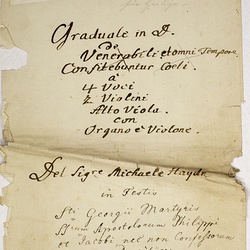 Graduale in D.
de
Venerabili et omni Tempore
Confitebuntur Coeli.
à
4 Voci
2 Violini
Alto Viola.
con
Organo è Violone.
Del Sigre Michaele Haydn.
in Festis
Sti Georgii Martyris
SStrum Apostolorum Philippi
et Jacobi nec non Confessorum